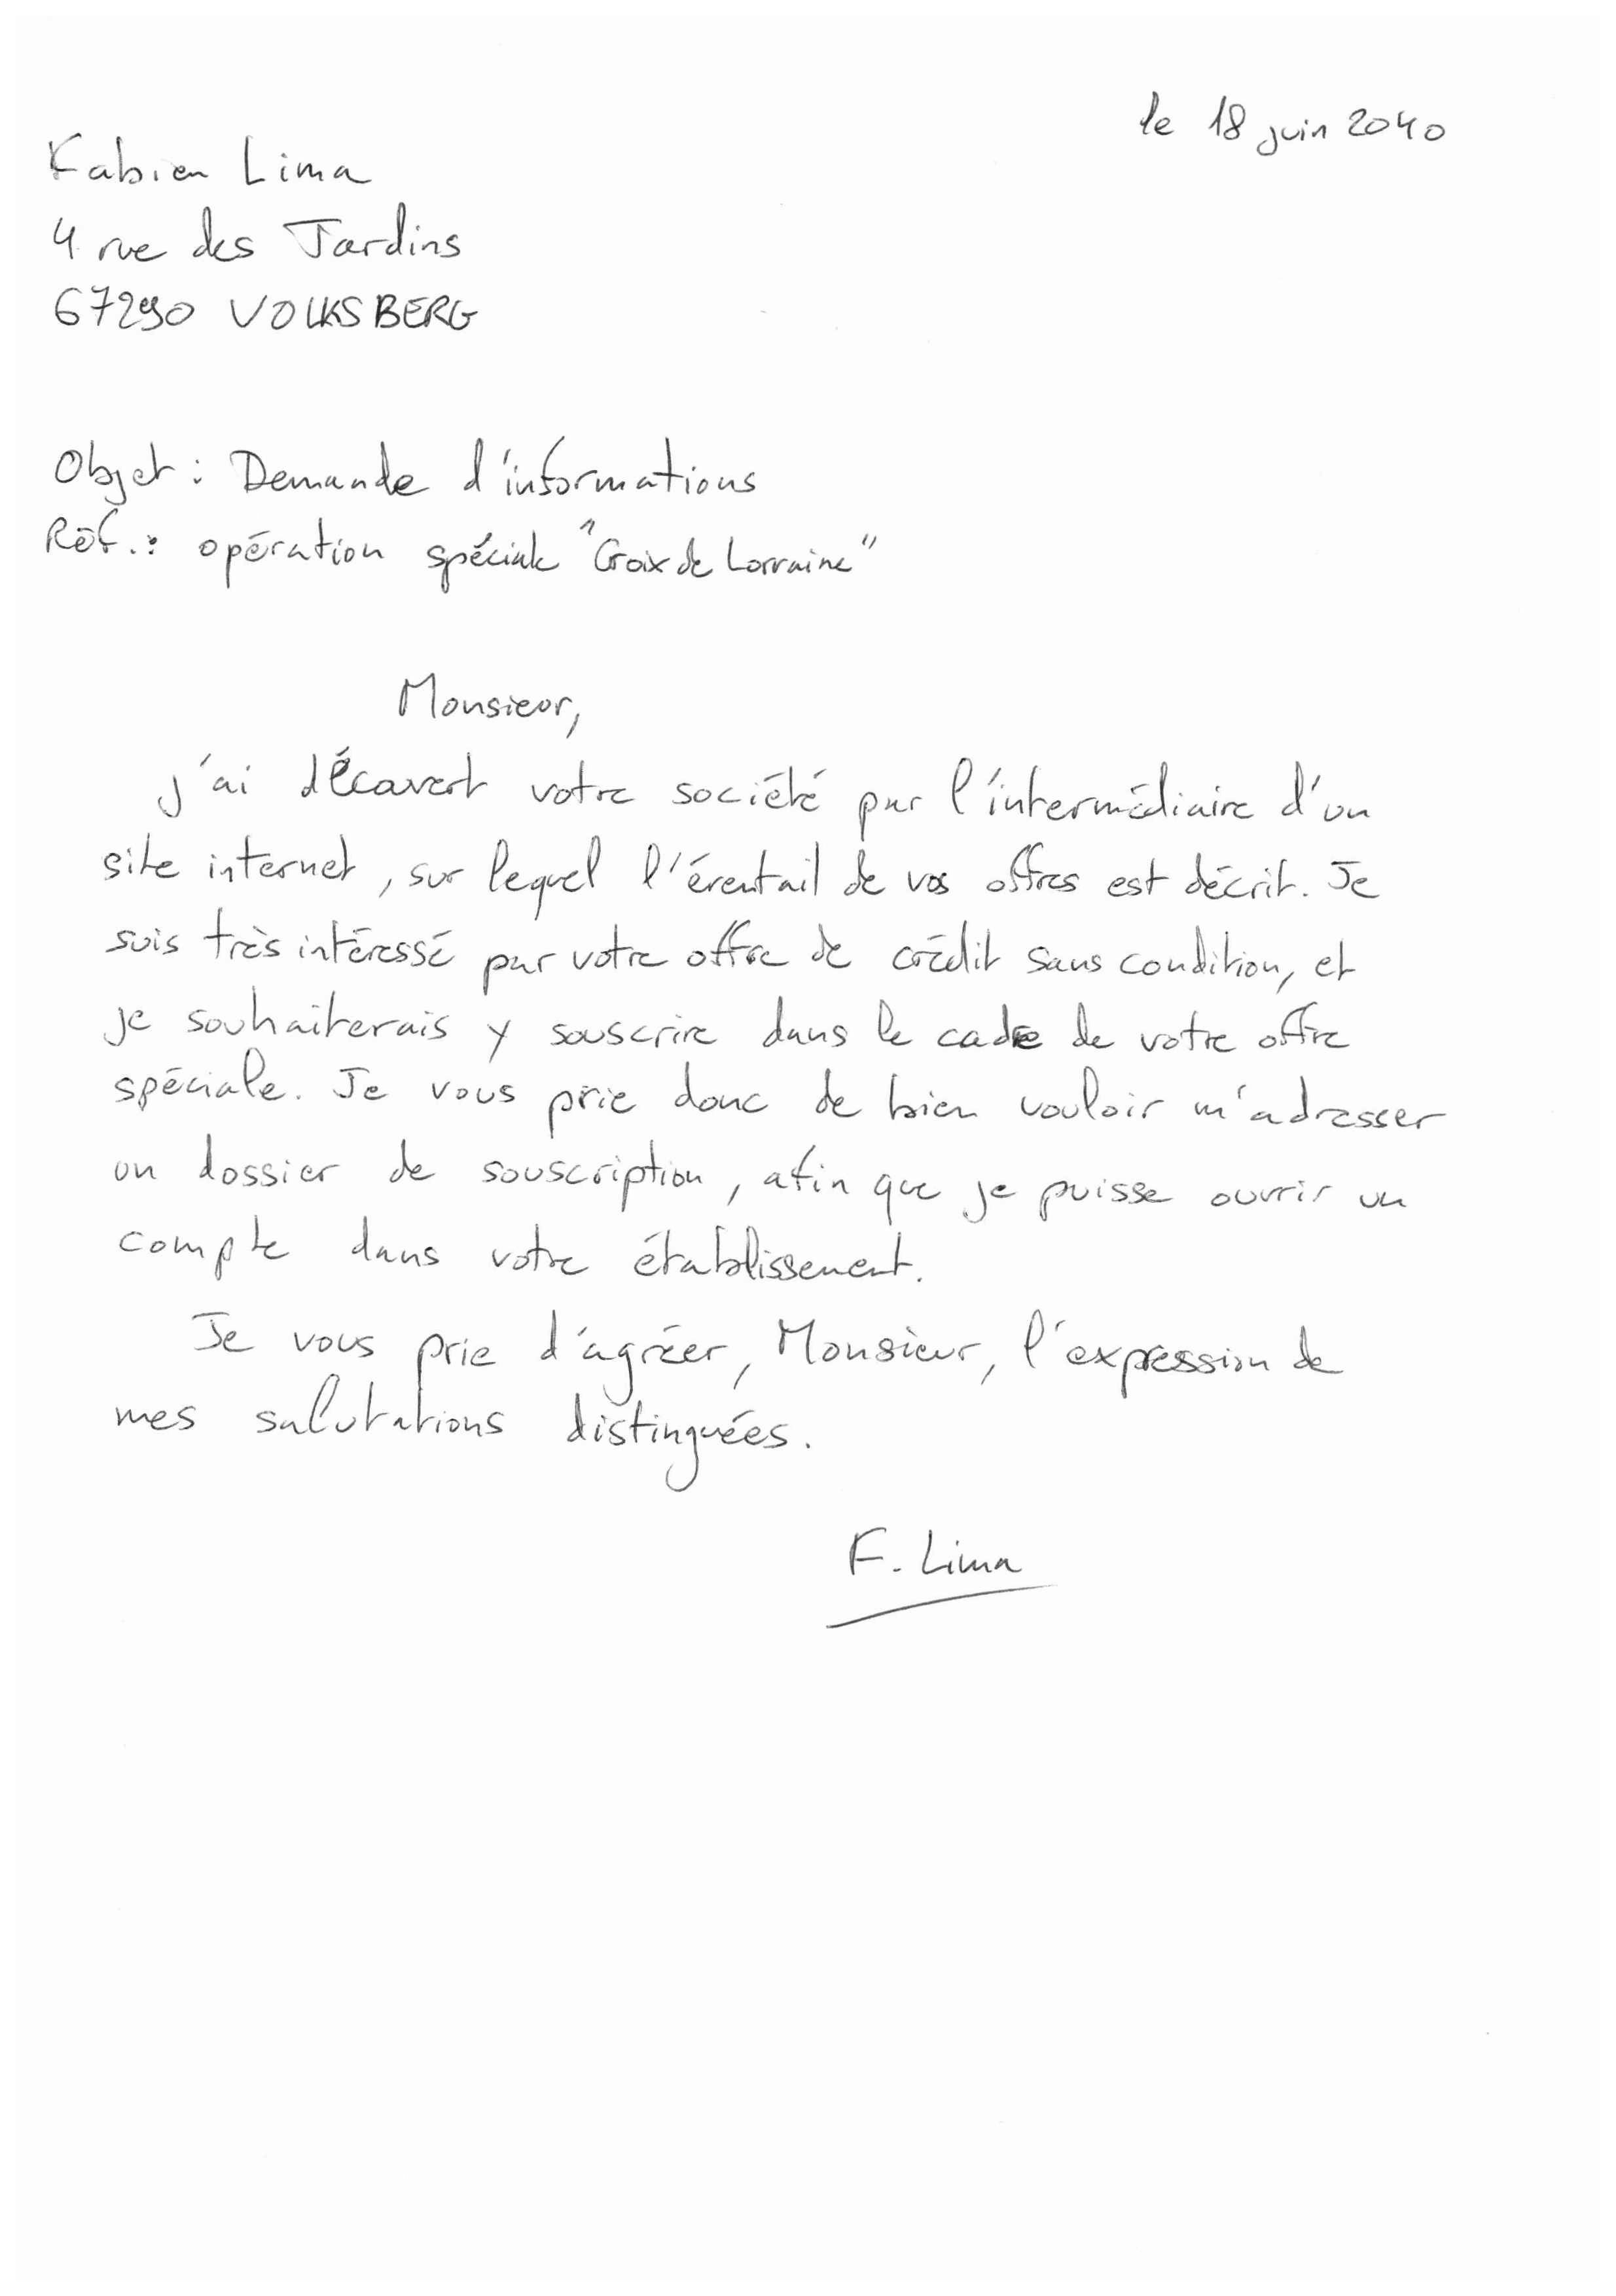 le 18 juin 2040
Fabien Lima
4 rue des Jardins
67290 VOLKSBERG
Objet : Demande d'informations
Réf. : opération spéciale "Croix de Lorraine"
Monsieur,
j'ai découvert votre société par l'intermédiaire d'un
site internet, sur lequel l'éventail de vos offres est décrit. Je
suis très intéressé par votre offre de crédit sans condition, et
je souhaiterais y souscrire dans le cadre de votre offre
spéciale. Je vous prie donc de bien vouloir m'adresser
un dossier de souscription, afin que je puisse ouvrir un
compte dans votre établissement.
Je vous prie d'agréer, Monsieur, l'expression de
mes salutations distinguées.
F. Lima